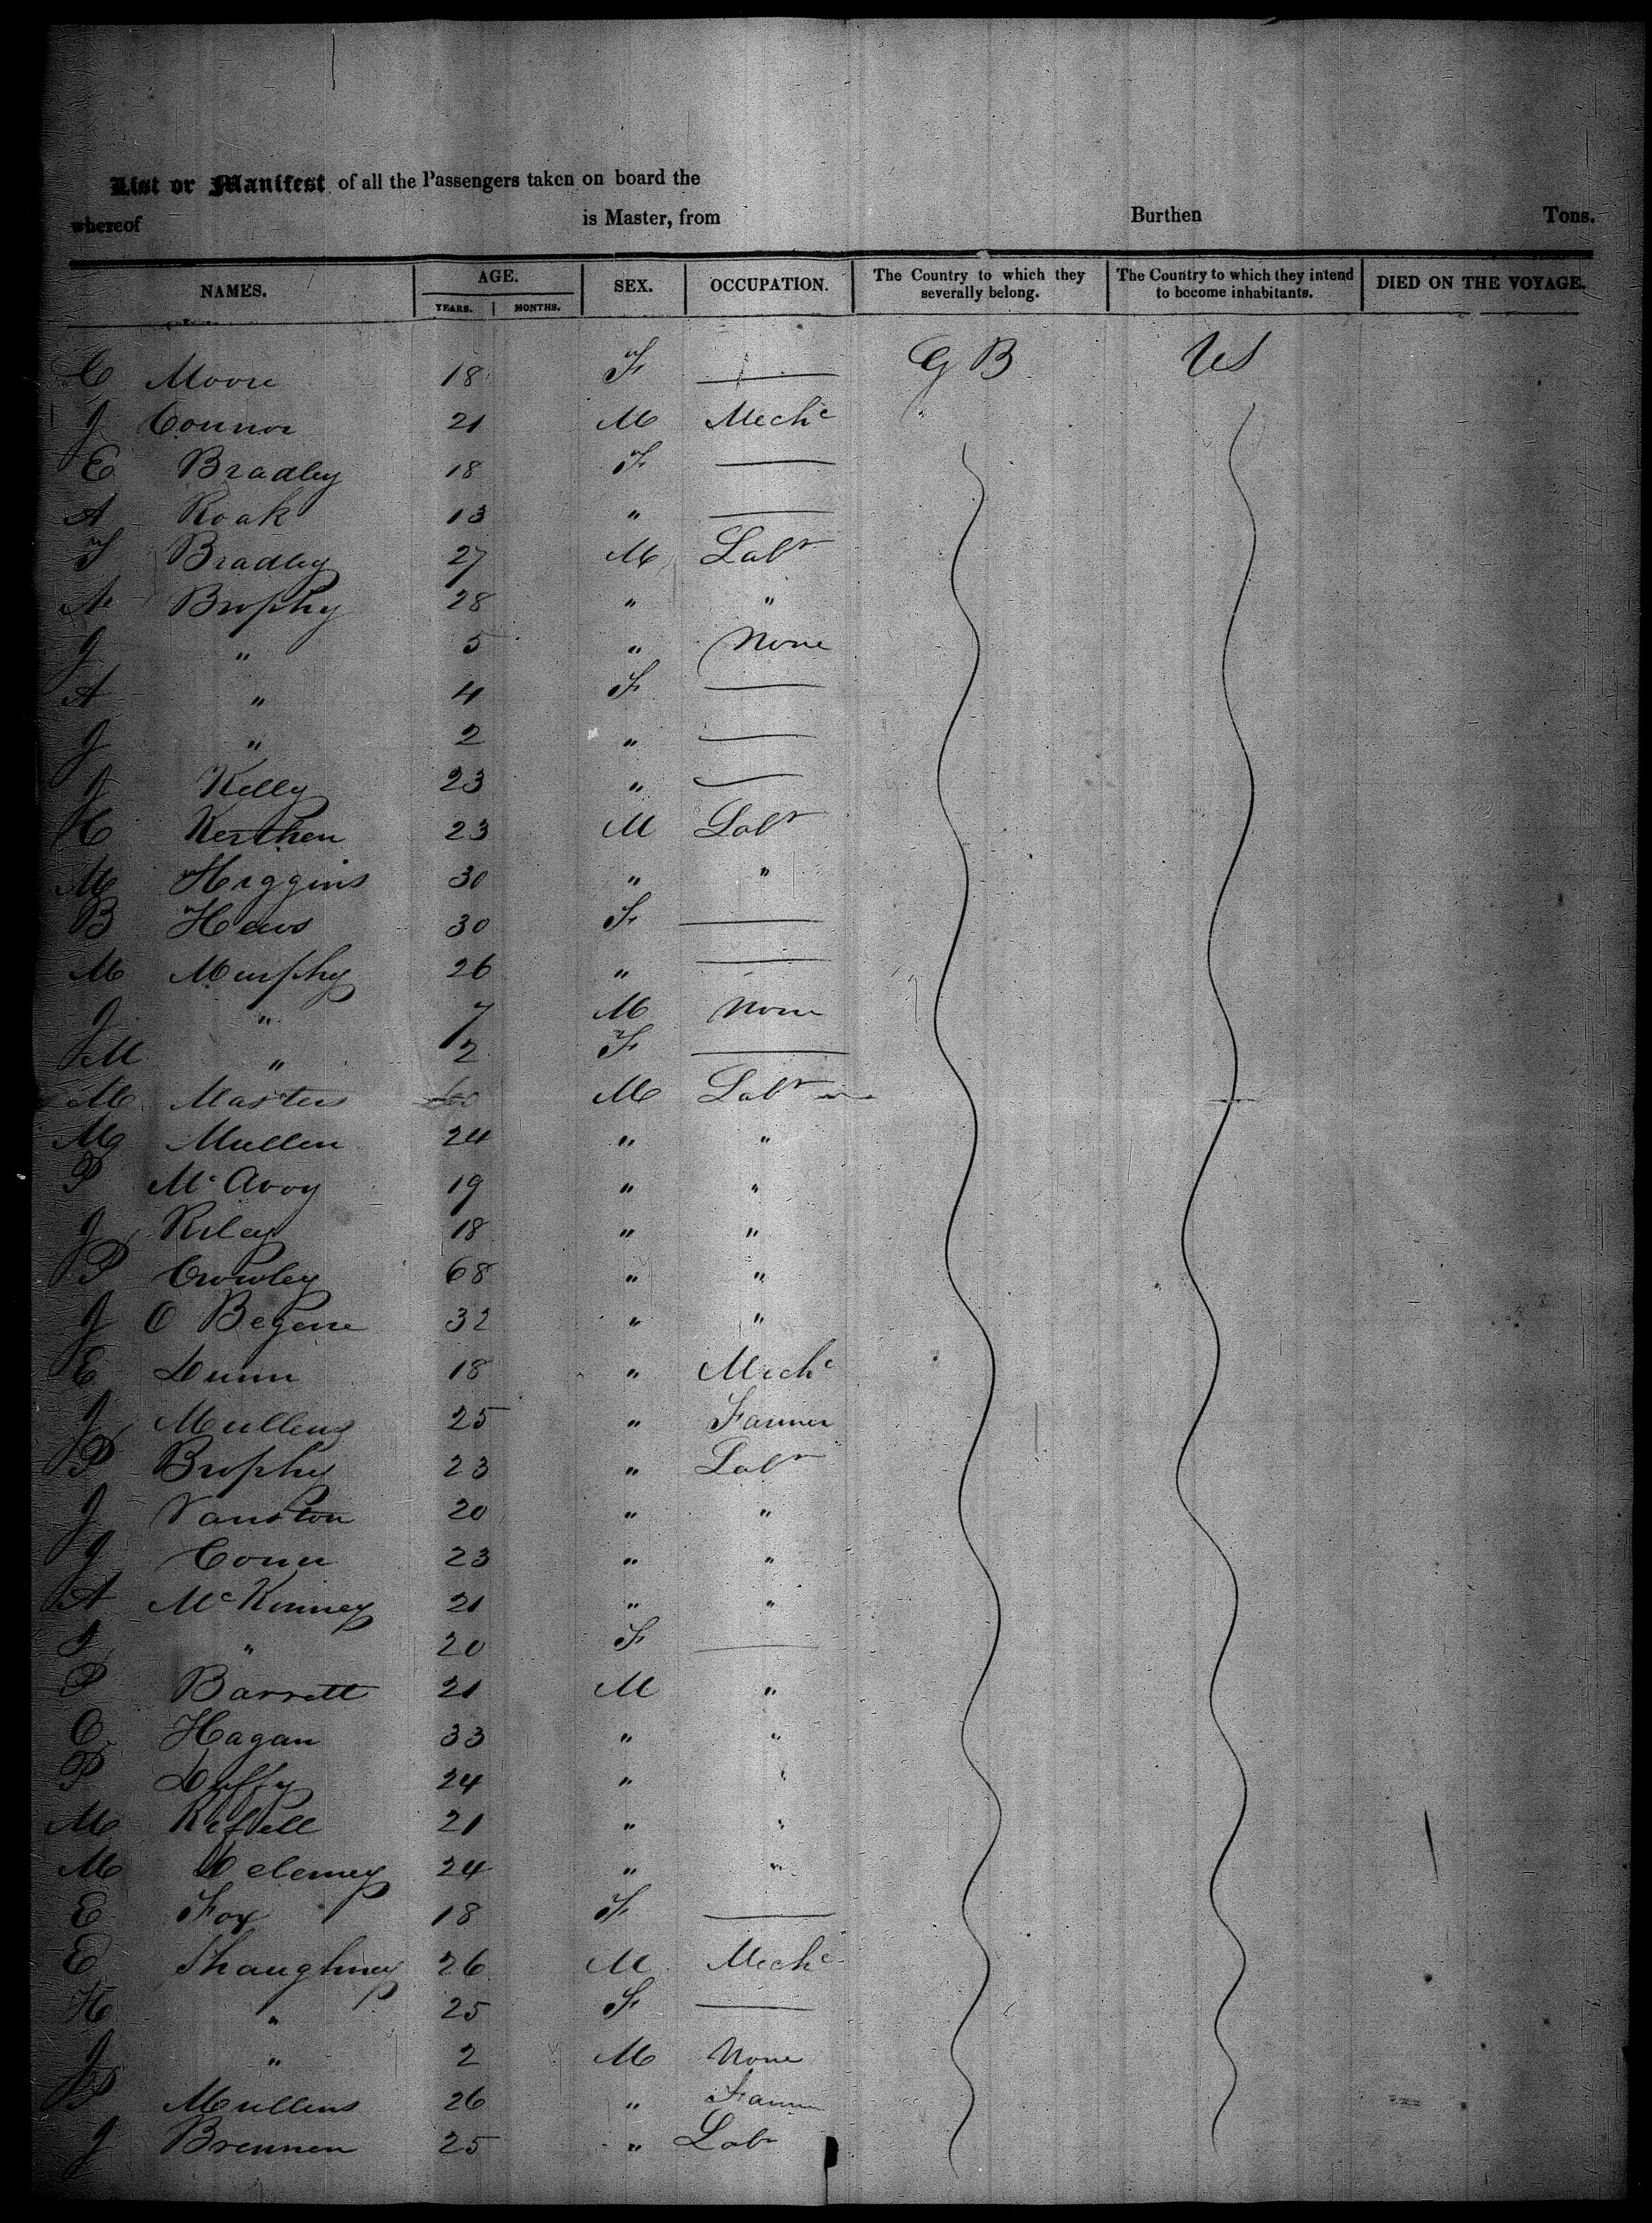 List or Manifest of all the Passengers taken on board the
whereof is Master, from Burthen Tons.
NAMES. AGE. SEX. OCCUPATION. The Country to which they severally belong. The Country to which they intend to become inhabitants. DIED ON THE VOYAGE.
YEARS. MONTHS.
C Moore 18 F — G B US
J Connor 21 M Mechc "
E Bradley 18 F —
A Roak 13 " —
S Bradley 27 M Labr
A Brophy 28 " "
J " 5 " None
A " 4 F —
J " 2 " —
Kelly 23 " —
C 23 M Labr
M Higgins 30 " "
B Haws 30 F —
M Murphy 26 " —
J " 7 M None
M " 2 F —
M Masters M Labr
M Mullen 24 " "
P McAvoy 19 " "
J Riley 18 " "
P Crowley 68 " "
J O 32 " "
E Dunn 18 " Mechc
J Mullens 25 " Farmer
P Brophy 23 " Labr
J Vanston 20 " "
J 23 " "
A McKinney 21 " "
" 20 F —
P Barrett 21 M "
C Hagan 33 " "
P Duffy 24 " "
M 21 " "
M Delemey 24 " "
E Fox 18 F —
E Shaughney 26 M Mechc
H " 25 F —
J " 2 M None
P Mullens 26 " Farmer
J Brennen 25 " Labr